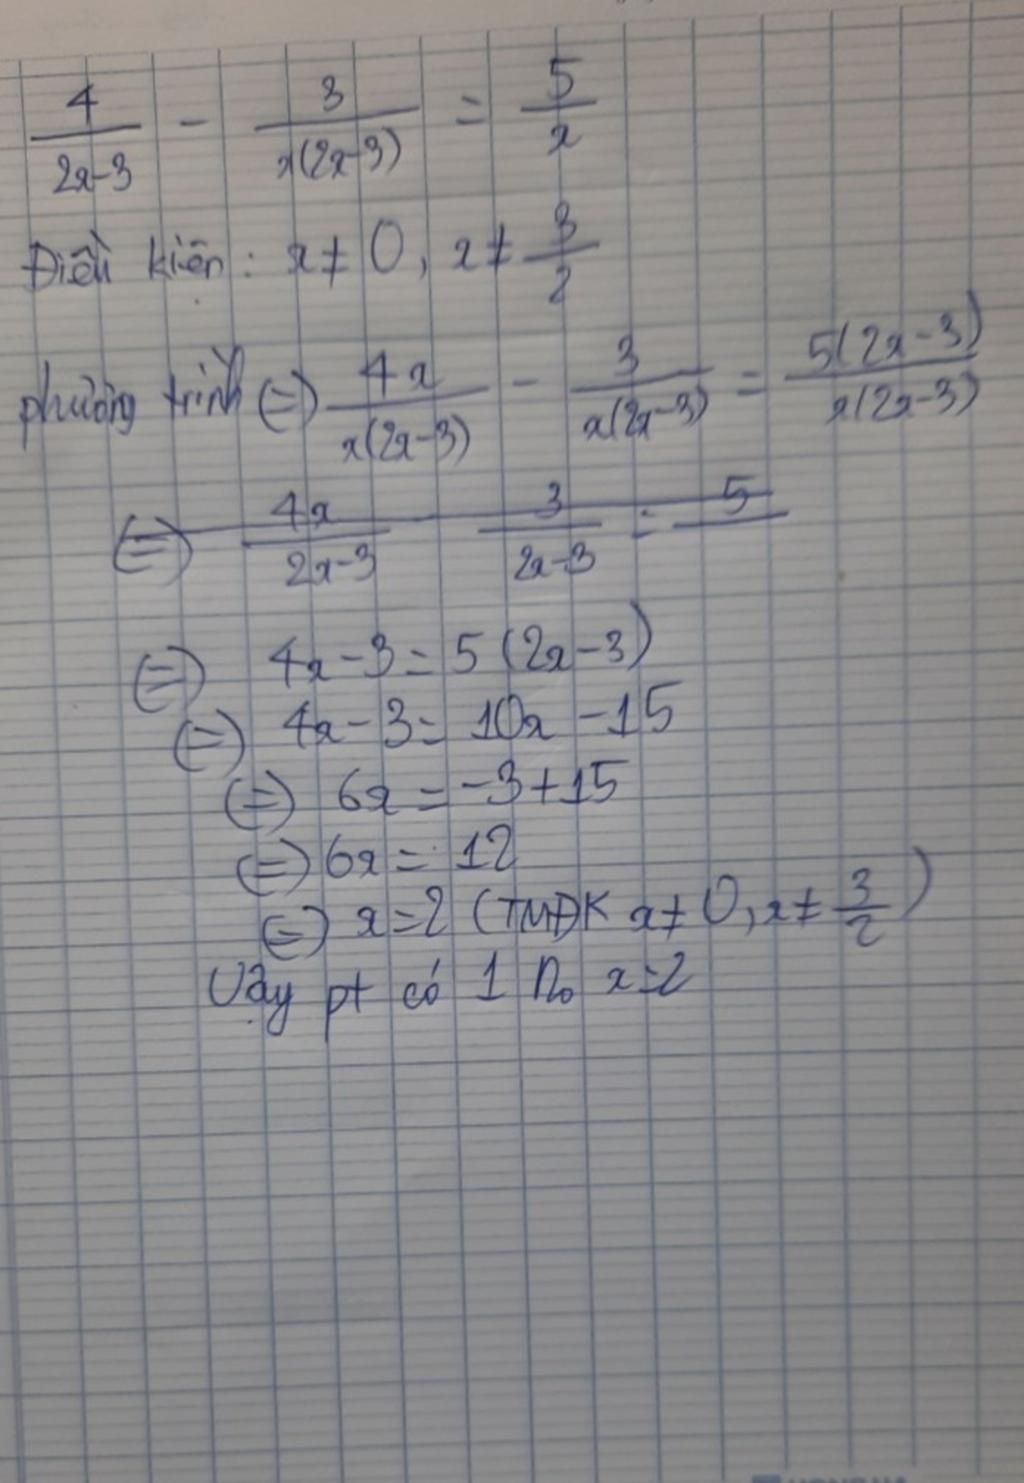 4/(2x-3) - 3/(x(2x-3)) = 5/x
Điều kiện: x ≠ 0, x ≠ 3/2
phương trình (=) 4x/(x(2x-3)) - 3/(x(2x-3)) = 5(2x-3)/(x(2x-3))
(=) 4x/(2x-3) - 3/(2x-3) = 5
(=) 4x-3 = 5(2x-3)
(=) 4x-3 = 10x-15
(=) 6x = -3+15
(=) 6x = 12
(=) x=2 (TMĐK x ≠ 0, x ≠ 3/2)
Vậy pt có 1 no x=2